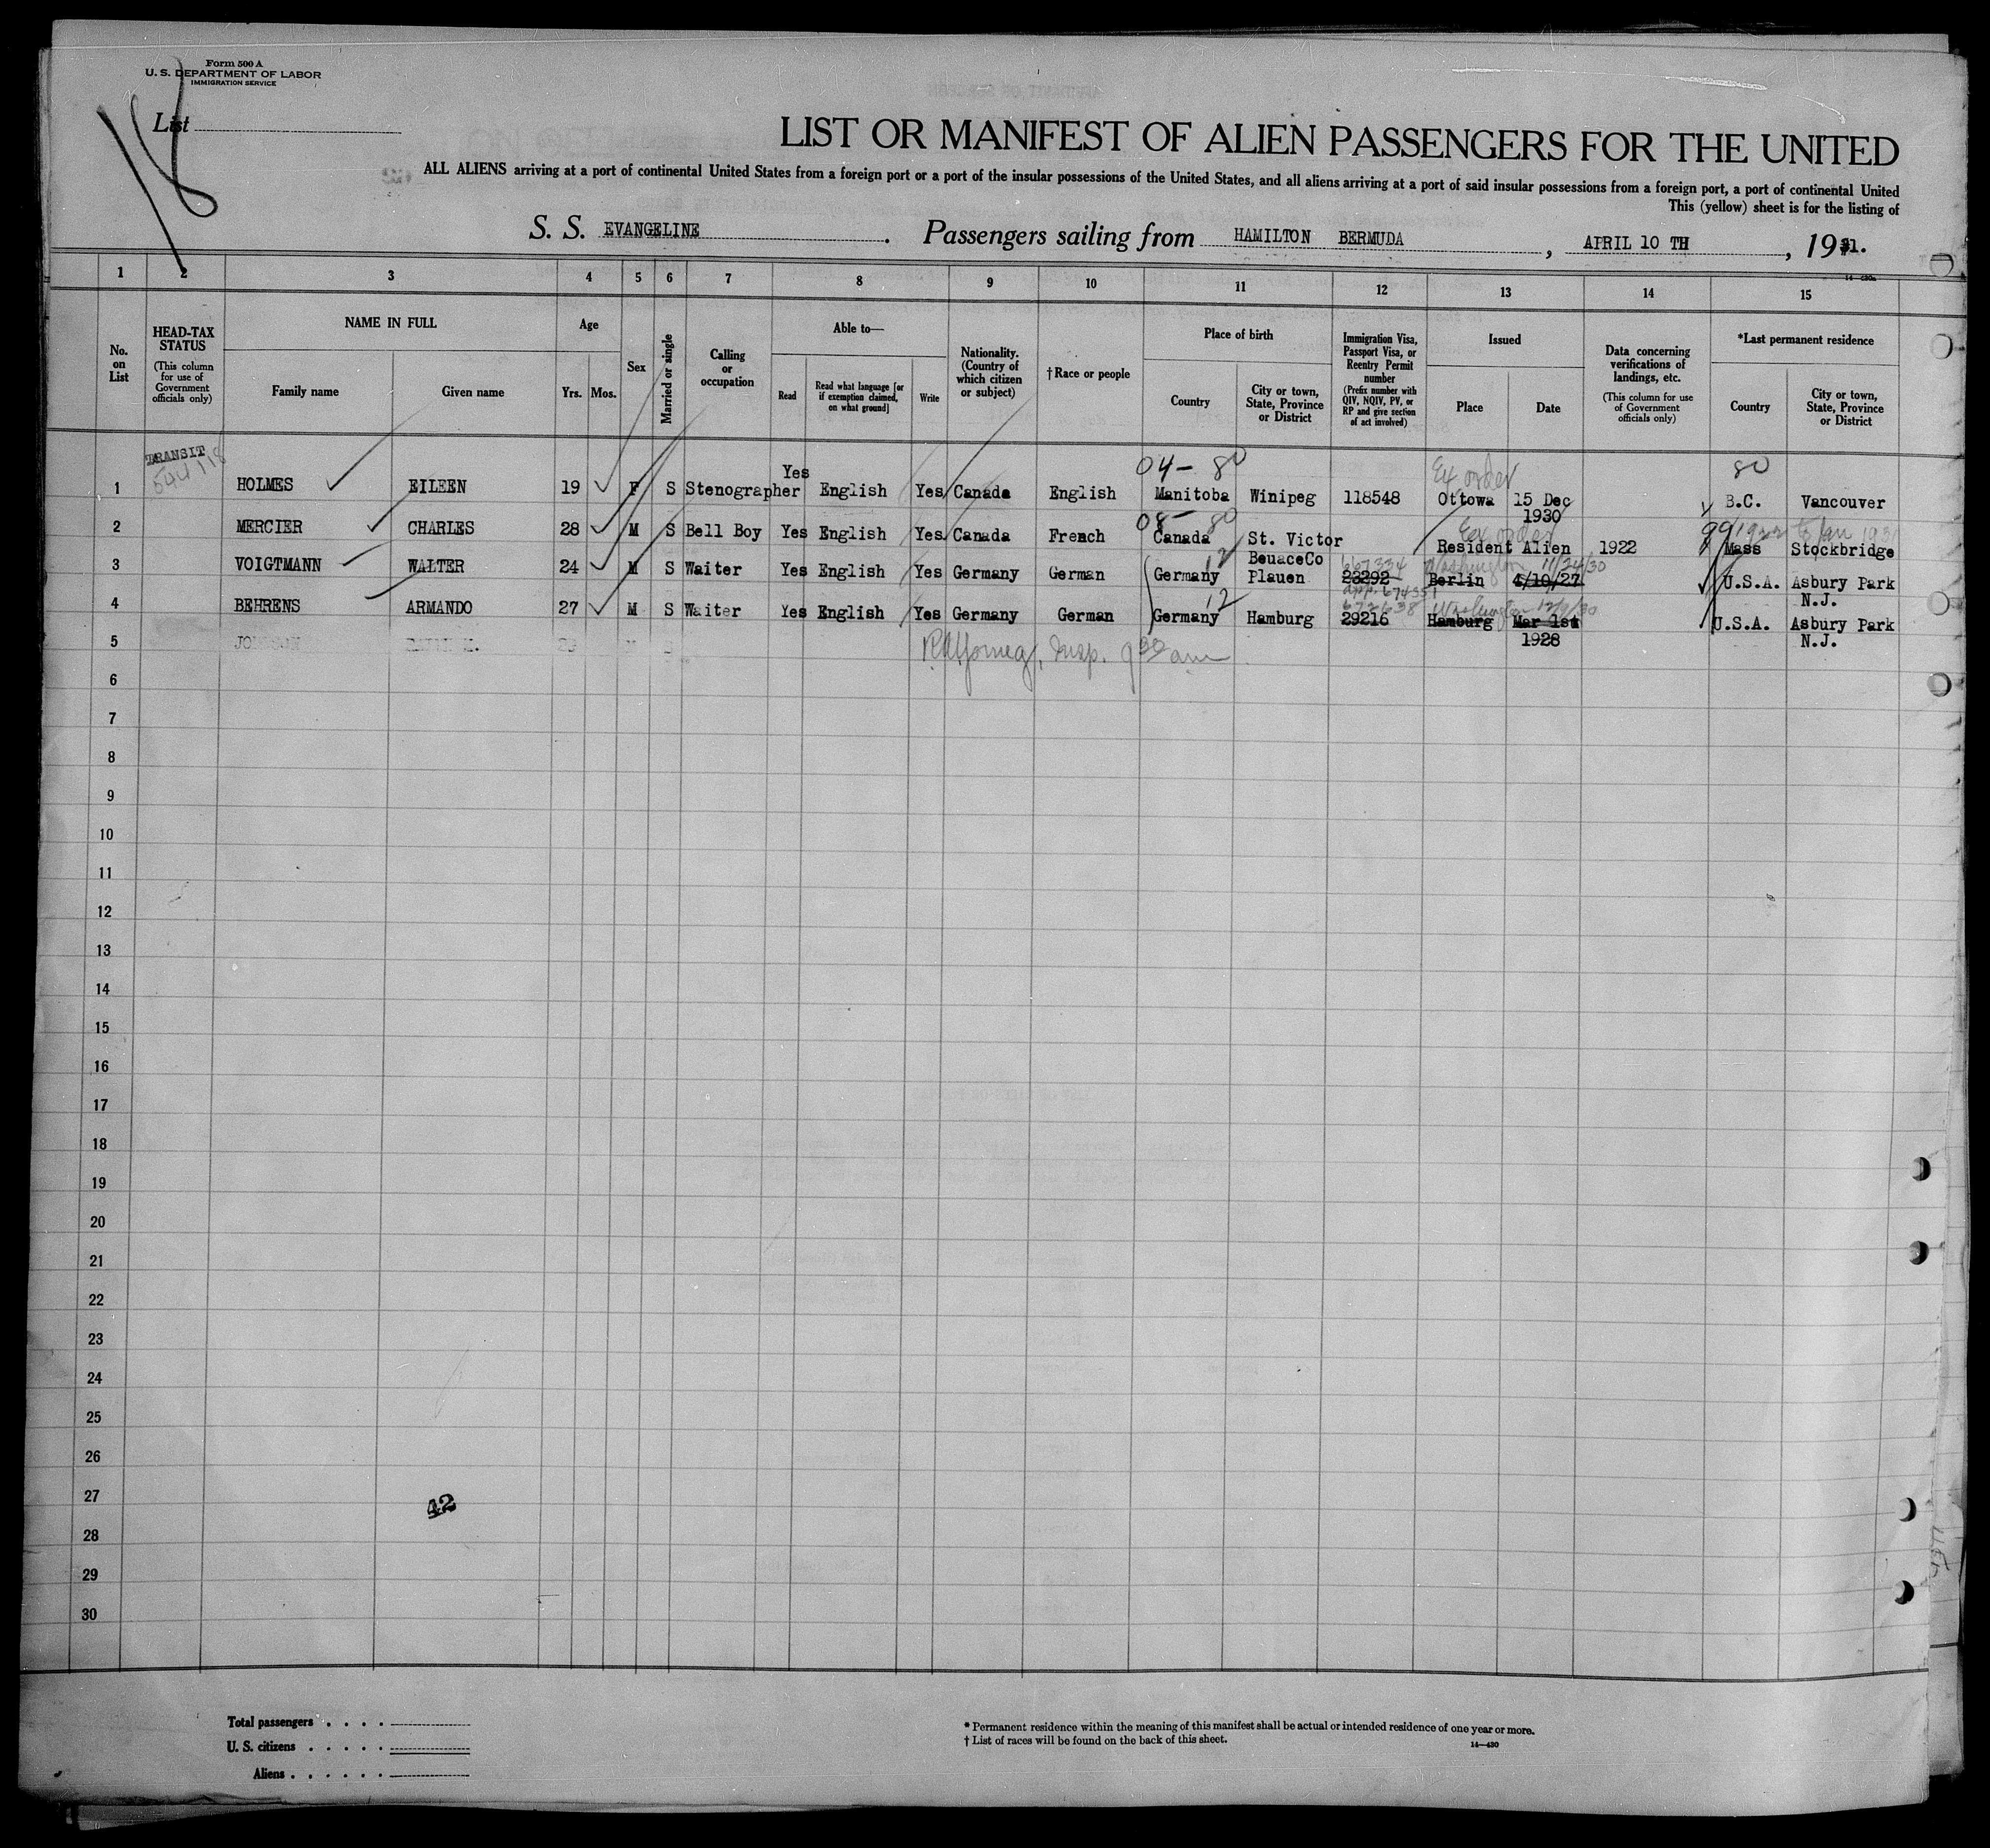 Form 500 A
U. S. DEPARTMENT OF LABOR
IMMIGRATION SERVICE
List
LIST OR MANIFEST OF ALIEN PASSENGERS FOR THE UNITED
ALL ALIENS arriving at a port of continental United States from a foreign port or a port of the insular possessions of the United States, and all aliens arriving at a port of said insular possessions from a foreign port, a port of continental United
This (yellow) sheet is for the listing of
S. S. EVANGELINE. Passengers sailing from HAMILTON BERMUDA, APRIL 10 TH, 1931.
1 2 3 4 5 6 7 8 9 10 11 12 13 14 15
No. on List
HEAD-TAX STATUS (This column for use of Government officials only)
NAME IN FULL
Family name
Given name
Age
Yrs. Mos.
Sex
Married or single
Calling or occupation
Able to—
Read
Read what language [or if exemption claimed, on what ground]
Write
Nationality. (Country of which citizen or subject)
†Race or people
Place of birth
Country
City or town, State, Province or District
Immigration Visa, Passport Visa, or Reentry Permit number (Prefix number with QIV, NQIV, PV, or RP and give section of act involved)
Issued
Place
Date
Data concerning verifications of landings, etc. (This column for use of Government officials only)
*Last permanent residence
Country
City or town, State, Province or District
TRANSIT
04- 80 Ex order 80
1 HOLMES EILEEN 19 F S Stenographer Yes English Yes Canada English Manitoba Winipeg 118548 Ottowa 15 Dec 1930 B.C. Vancouver
08- 80 Ex order 99
2 MERCIER CHARLES 28 M S Bell Boy Yes English Yes Canada French Canada St. Victor BeuaceCo Resident Alien 1922 Mass Stockbridge
12 667334 Washington 11/24/30
3 VOIGTMANN WALTER 24 M S Waiter Yes English Yes Germany German Germany Plauen 23292 Berlin 4/10/27 U.S.A. Asbury Park N.J.
12 672638 Washington 12/9/30
4 BEHRENS ARMANDO 27 M S Waiter Yes English Yes Germany German Germany Hamburg 29216 Hamburg Mar 1st 1928 U.S.A. Asbury Park N.J.
5 Insp. 9 30 am
6
7
8
9
10
11
12
13
14
15
16
17
18
19
20
21
22
23
24
25
26
27
42
28
29
30
Total passengers . . . .
U. S. citizens . . . . .
Aliens . . . . . .
* Permanent residence within the meaning of this manifest shall be actual or intended residence of one year or more.
† List of races will be found on the back of this sheet.
14—430